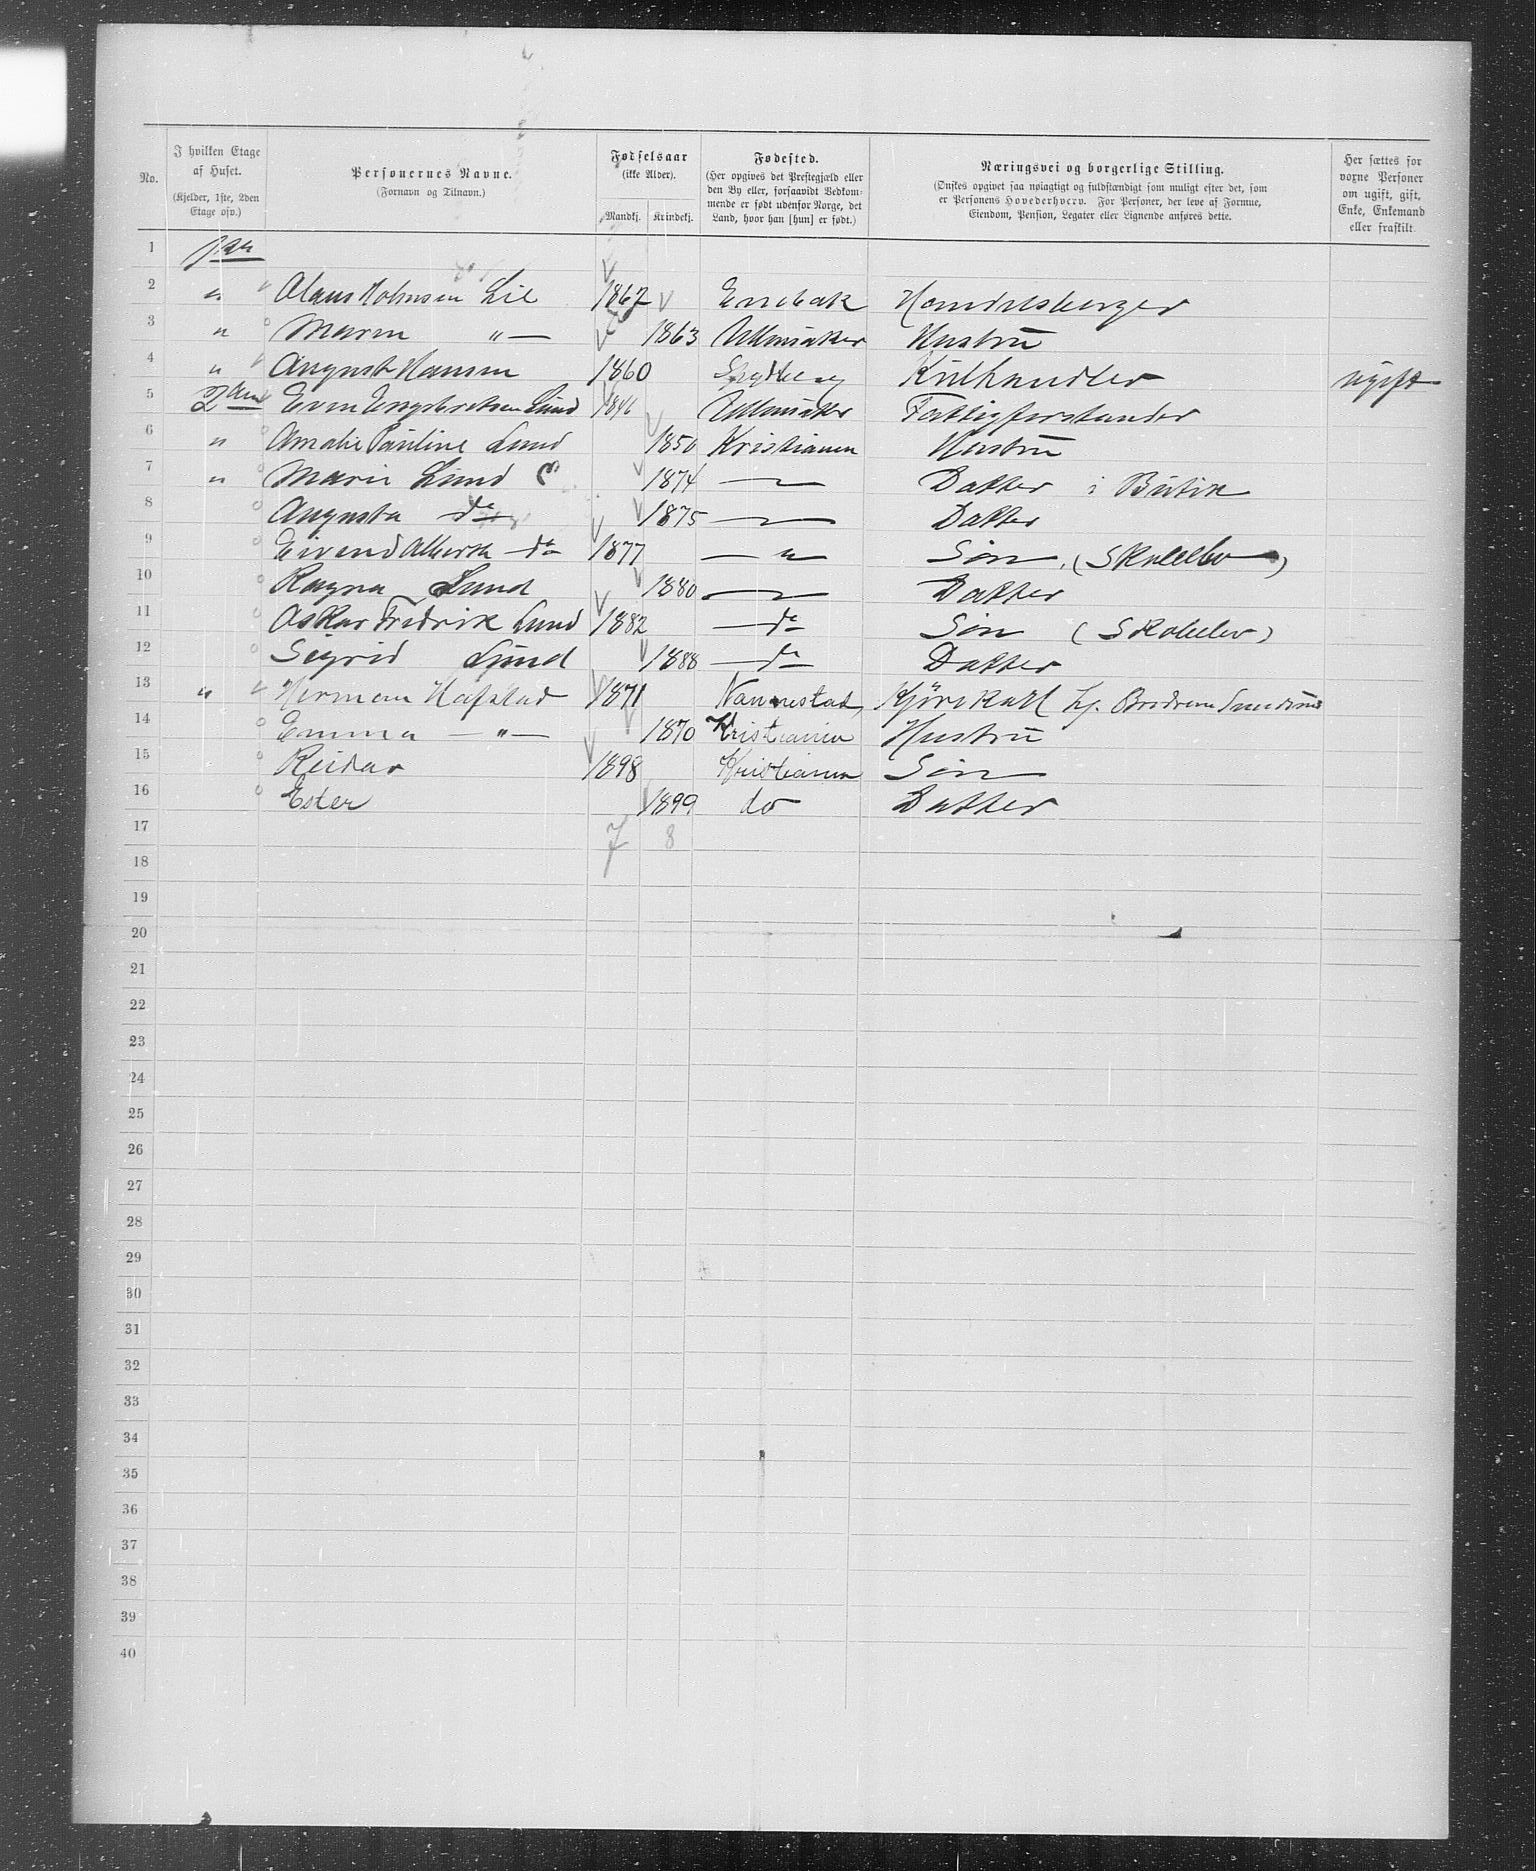 No.
I hvilken Etage af Huset.
(Kjelder, 1ste, 2den Etage osv.)
Personernes Navne.
(Fornavn og Tilnavn.)
Fødselsaar
(ikke Alder).
Mandkj. Kvindekj.
Fødested.
(Her opgives det Præstegjæld eller
den By eller, forsaavidt Vedkom-
mende er født udenfor Norge, det
Land, hvor han [hun] er født.)
Næringsvei og borgerlige Stilling.
(Ønskes opgivet saa nøiagtigt og fuldstændigt som muligt efter det, som
er Personens Hovederhverv. For Personer, der leve af Formue,
Eiendom, Pension, Legater eller Lignende anføres dette.
Her sættes for
voxne Personer
om ugift, gift,
Enke, Enkemand
eller fraskilt.
1
2 " Lie 1867 Enebak Handelsborger
3 " Maren "— 1863 Ullensaker Hustru
4 " August Hansen 1860 Kulhandler ugift
5 2den Even Engebretsen Lund 1846 Ullensaker Fattigforstander
6 " Amalie Pauline Lund 1850 Kristiania Hustru
7 " Marie Lund 1874 — " — Datter i Butik
8 Augusta do 1875 — " — Datter
9 Eivend Albert do 1877 — " Søn, (Skoleelev)
10 Ragna Lund 1880 — " — Datter
11 Oskar Fredrik Lund 1882 — do Søn (Skoleelev)
12 Sigrid Lund 1888 — do Datter
13 " Herman Hafstad 1871 Nannestad, Kjørekarl hj. Brødrene
14 Emma — " — 1870 Kristiania Hustru
15 Reidar 1898 Kristiania Søn
16 Ester 1899 do Datter
17 7 8
18
19
20
21
22
23
24
25
26
27
28
29
30
31
32
33
34
35
36
37
38
39
40